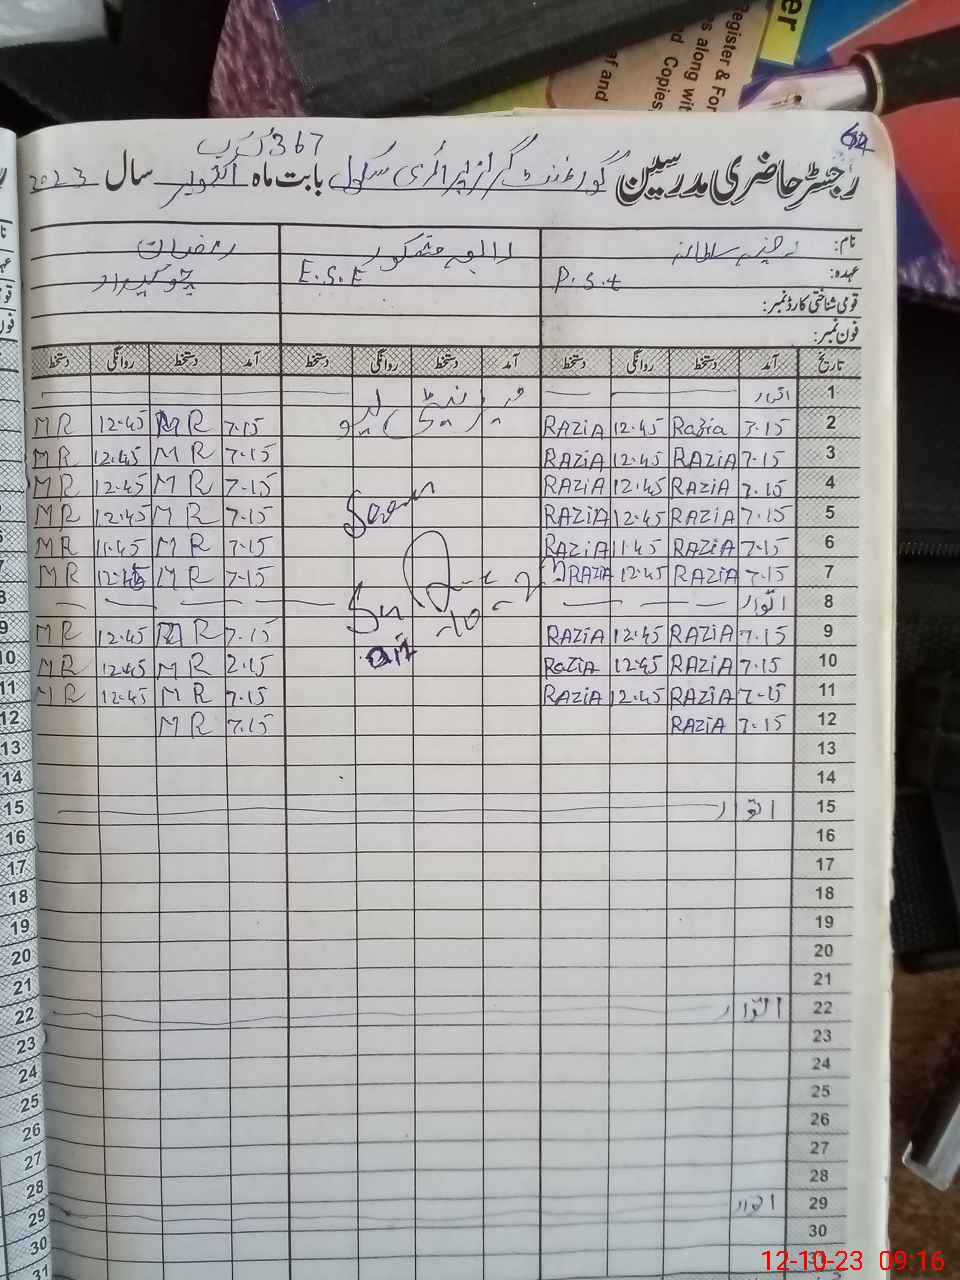 Register & For
s along wit
d Copies
af and
er
367 گ ب
رجسٹر حاضری مدرسین گورنمنٹ گرلز پرائمری سکول بابت ماہ اکتوبر سال 2023
نام: رضیہ سلطانہ رابعہ مشکور رمضان
عہدہ: P.S.t E.S.E چوکیدار
قومی شناختی کارڈ نمبر:
فون نمبر:
تاریخ آمد دستخط روانگی دستخط آمد دستخط روانگی دستخط آمد دستخط روانگی دستخط
1 اتوار
2 7.15 Razia 12.45 RAZIA میٹرنٹی لیو 7.15 M R 12.45 M R
3 7.15 RAZIA 12.45 RAZIA 7.15 M R 12.45 M R
4 7.15 RAZIA 12.45 RAZIA 7.15 M R 12.45 M R
5 7.15 RAZIA 12.45 RAZIA 7.15 M R 12.45 M R
6 7.15 RAZIA 11.45 RAZIA 7.15 M R 11.45 M R
7 7.15 RAZIA 12.45 RAZIA 7.15 M R 12.45 M R
8 اتوار
9 7.15 RAZIA 12.45 RAZIA 7.15 M R 12.45 M R
10 7.15 RAZIA 12.45 RAZIA 2.15 M R 12.45 M R
11 7.15 RAZIA 12.45 RAZIA 7.15 M R 12.45 M R
12 7.15 RAZIA 7.15 M R
13
14
15 اتوار
16
17
18
19
20
21
22 اتوار
23
24
25
26
27
28
29 اتوار
30
31
12-10-23 09:16